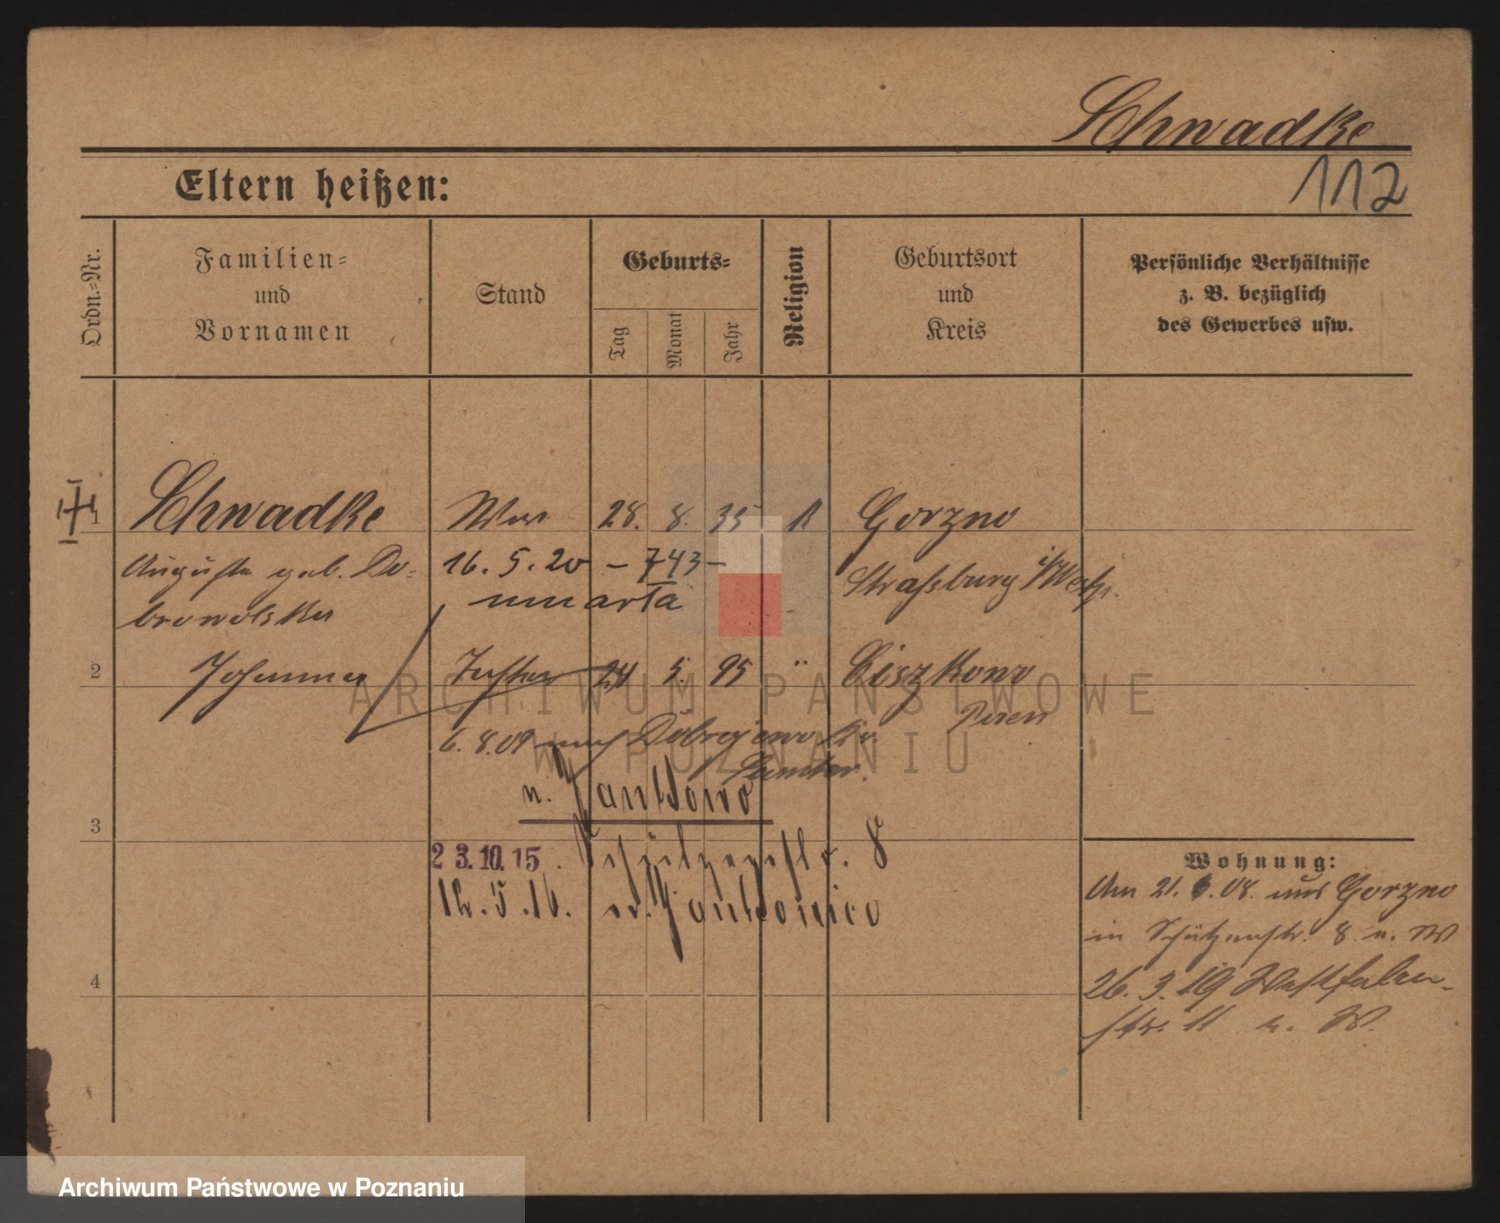 Schwadke
112
Eltern heißen:
Ordn.-Nr.
Familien-
und
Vornamen
Stand
Geburts-
Tag
Monat
Jahr
Religion
Geburtsort
und
Kreis
Persönliche Verhältnisse
z. B. bezüglich
des Gewerbes usw.
1 Schwadke Ww. 28. 8. 35 K Gorzno
Auguste geb. Do-
browolska
16. 5. 20 – 743 –
umarła
Strasburg i/Westpr.
2 Johanna Tochter 24 5. 95 "
Posen
6. 8. 09 nach Dobrojewo Kr.
Samter.
n. Jankowo
3
23.10.15. Schützenstr. 8
12. 5. 16.
4
Wohnung:
Am 21. 6. 08. aus Gorzno
in Schützenstr. 8 u. W
26. 3. 19 Westfalen-
str. 11 b. W.
ARCHIWUM PAŃSTWOWE
W POZNANIU
Archiwum Państwowe w Poznaniu